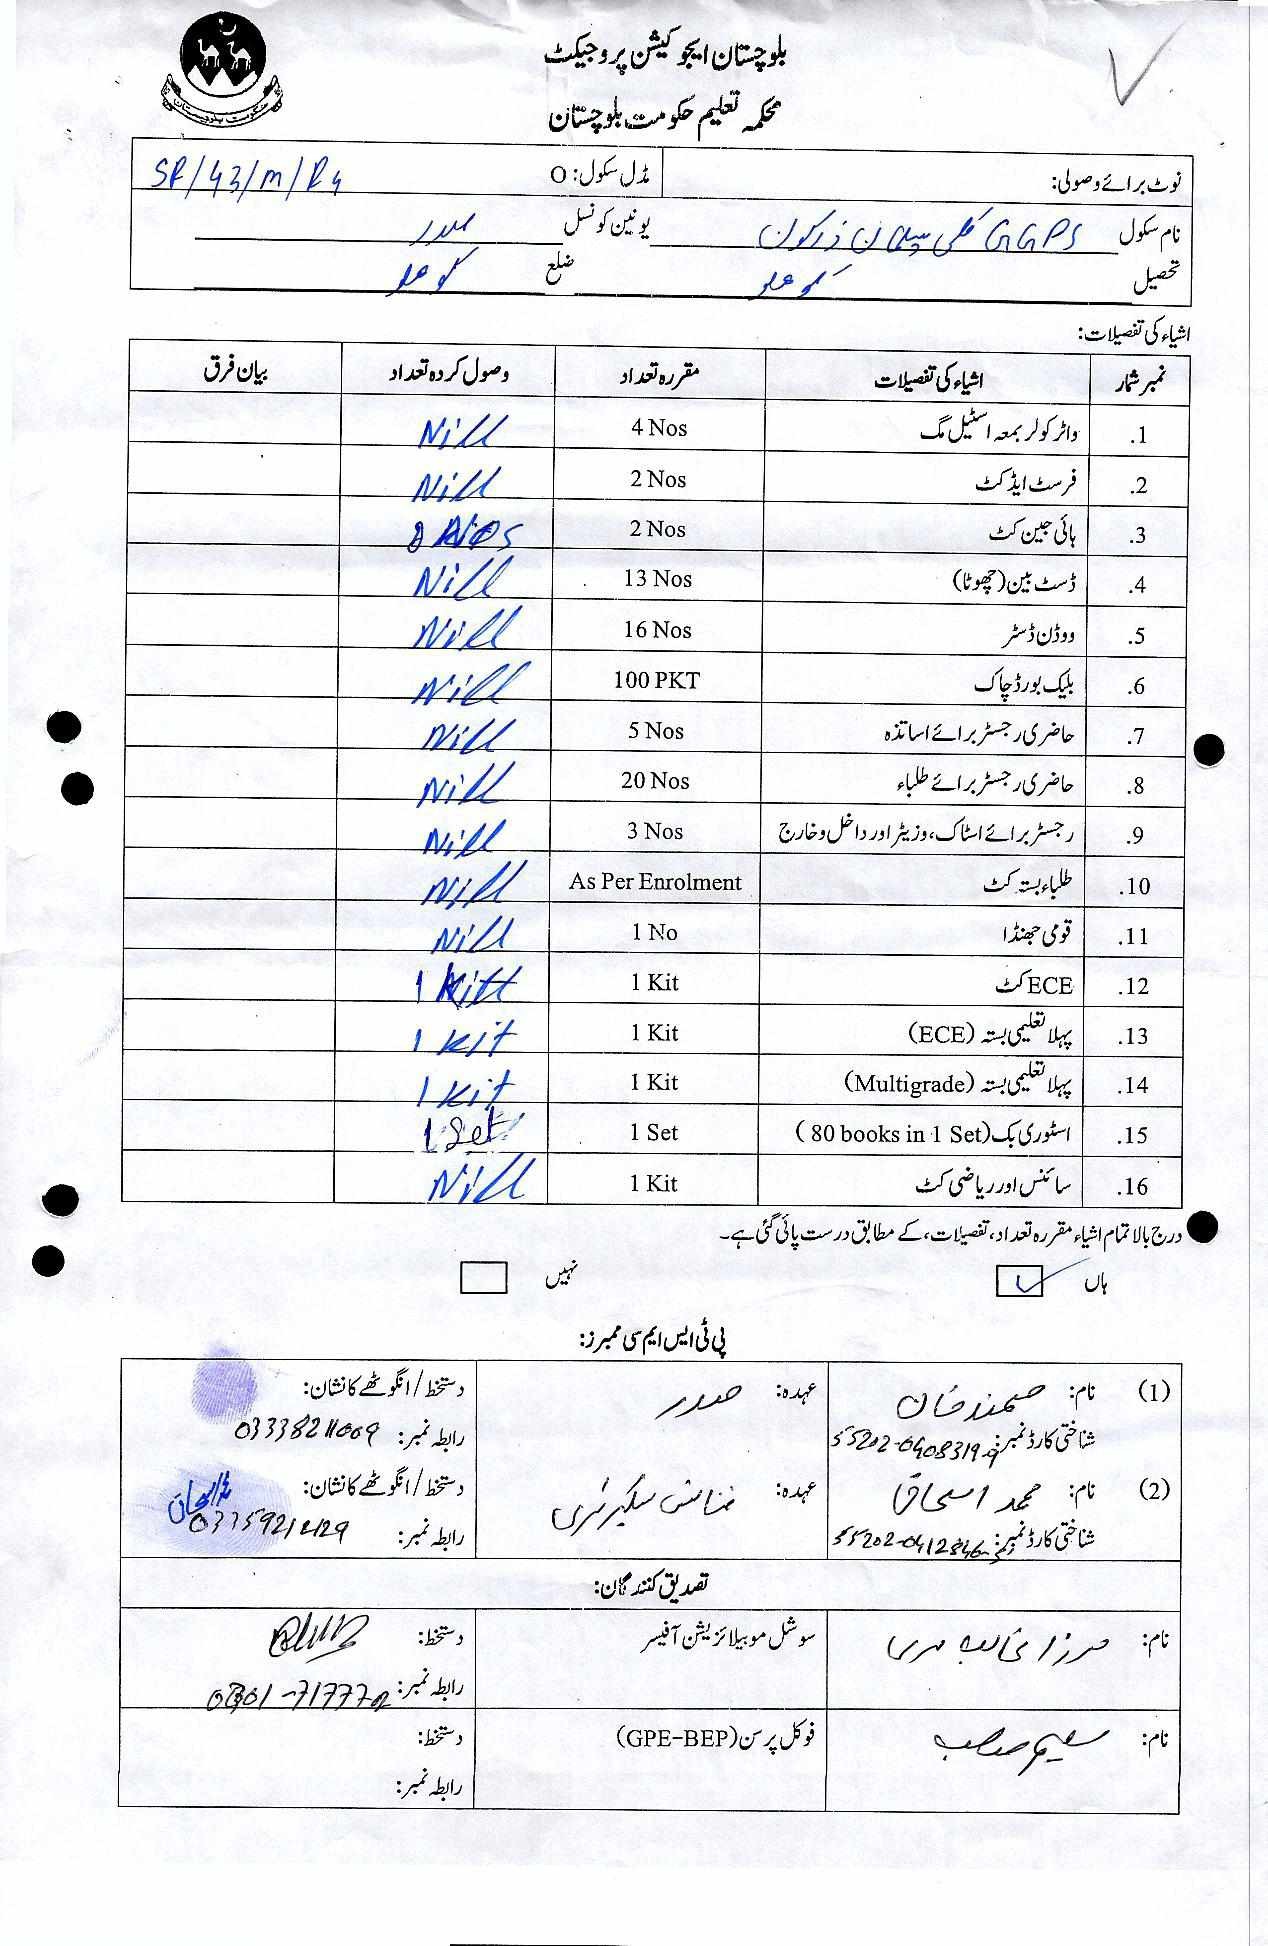 حکومت بلوچستان
بلوچستان ایجوکیشن پروجیکٹ
محکمہ تعلیم حکومت بلوچستان
نوٹ برائے وصولی: مڈل سکول: O SR/43/M/R4
نام سکول GGPS کلی سلیمان زرکون یونین کونسل صدر
تحصیل کوہلو ضلع کوہلو
اشیاء کی تفصیلات:
نمبر شمار اشیاء کی تفصیلات مقررہ تعداد وصول کردہ تعداد بیان فرق
1. واٹر کولر بمعہ اسٹیل مگ 4 Nos Nill
2. فرسٹ ایڈ کٹ 2 Nos Nill
3. ہائی جین کٹ 2 Nos 2 Nos
4. ڈسٹ بین (چھوٹا) 13 Nos Nill
5. ووڈن ڈسٹر 16 Nos Nill
6. بلیک بورڈ چاک 100 PKT Nill
7. حاضری رجسٹر برائے اساتذہ 5 Nos Nill
8. حاضری رجسٹر برائے طلباء 20 Nos Nill
9. رجسٹر برائے اسٹاک، وزیٹر اور داخل و خارج 3 Nos Nill
10. طلباء بستہ کٹ As Per Enrolment Nill
11. قومی جھنڈا 1 No Nill
12. ECE کٹ 1 Kit 1 Kitt
13. پہلا تعلیمی بستہ (ECE) 1 Kit 1 Kit
14. پہلا تعلیمی بستہ (Multigrade) 1 Kit 1 Kit
15. اسٹوری بک (80 books in 1 Set) 1 Set 1 Set
16. سائنس اور ریاضی کٹ 1 Kit Nill
درج بالا تمام اشیاء مقررہ تعداد، تفصیلات، کے مطابق درست پائی گئی ہے۔
ہاں نہیں
پی ٹی ایس ایم سی ممبرز:
(1) نام: صمند خان عہدہ: صدر دستخط/انگوٹھے کا نشان:
شناختی کارڈ نمبر: 55202-0408319-9 رابطہ نمبر: 03338211009
(2) نام: محمد اسحاق عہدہ: فنانس سیکریٹری دستخط/انگوٹھے کا نشان: محمد اسحاق
شناختی کارڈ نمبر: 55202-0412846- رابطہ نمبر: 03359212129
تصدیق کنندگان:
نام: مرزا غالب مری سوشل موبیلائزیشن آفیسر دستخط:
رابطہ نمبر: 0301-717772
نام: سلیم صاحب فوکل پرسن (GPE-BEP) دستخط:
رابطہ نمبر: